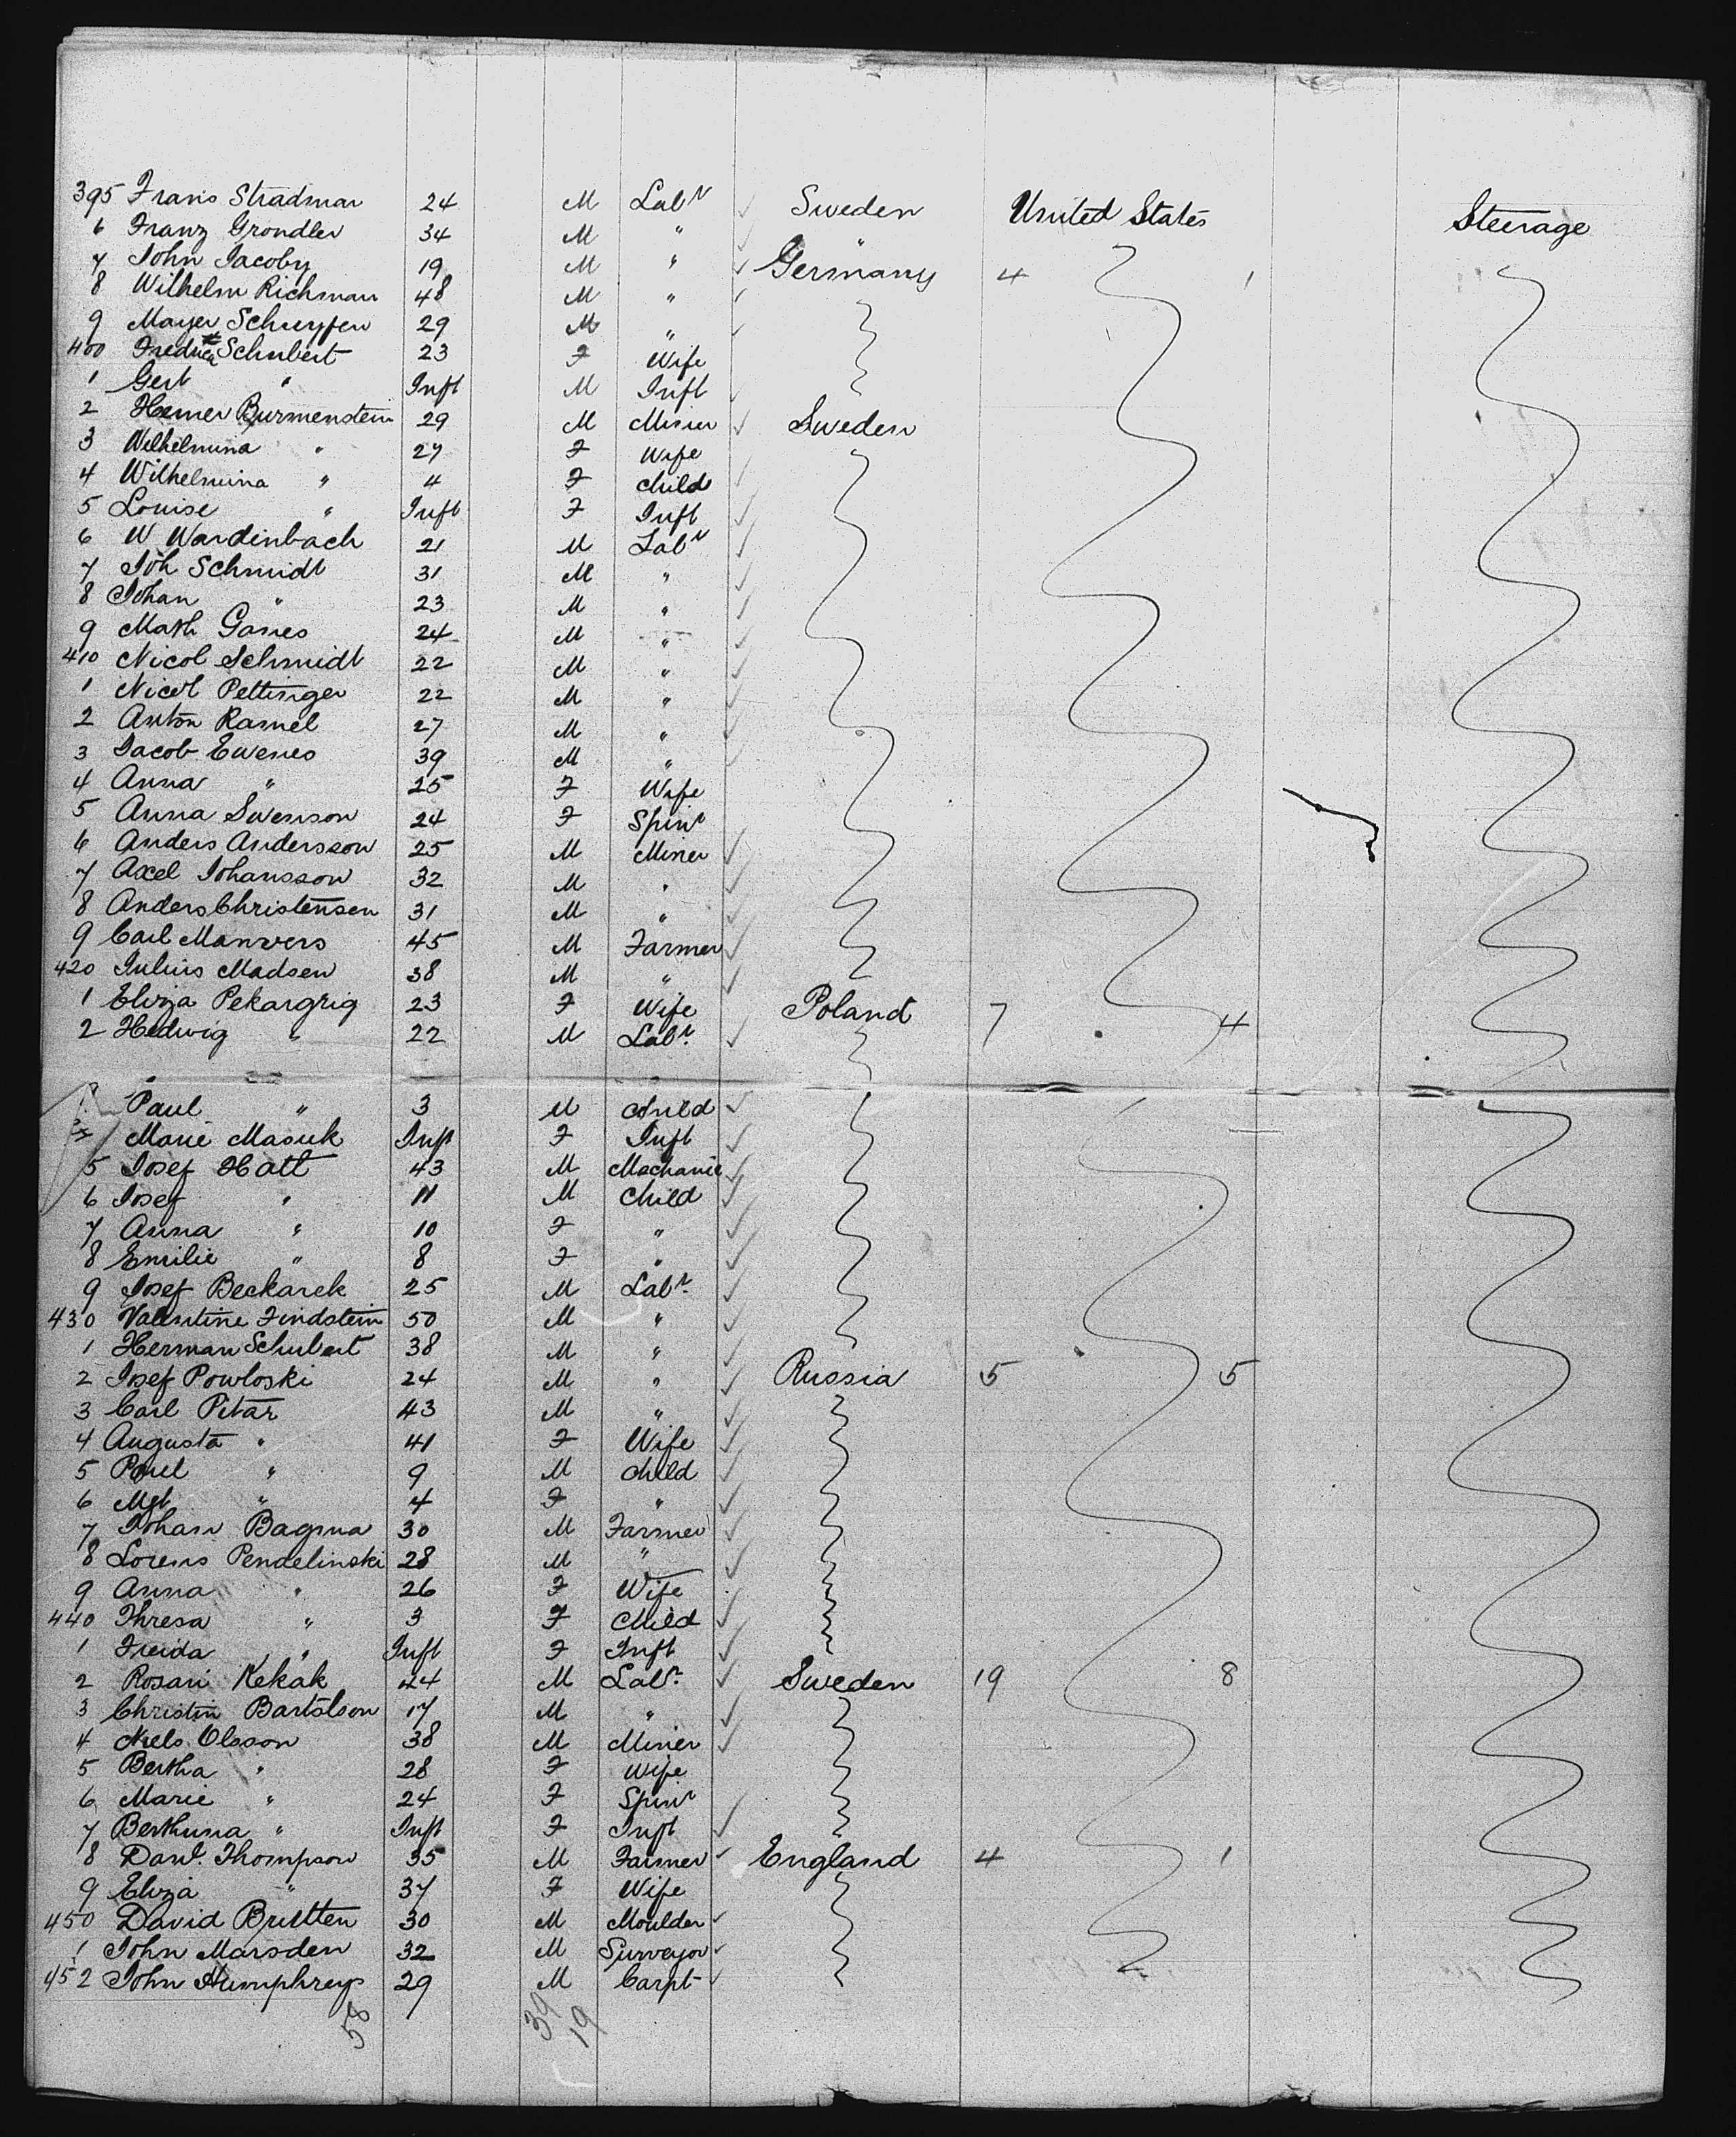 395 Frans Stradman 24 M Labr Sweden United States Steerage
6 Franz Grondler 34 M " "
7 John Jacoby 19 M " Germany 4 1
8 Wilhelm Richman 48 M "
9 Mayer Schuyfer 29 M "
400 Schubert 23 F Wife
1 Gert " Inft M Inft
2 Hemer Burmenstein 29 M Miner Sweden
3 Wilhelmina " 27 F Wife
4 Wilhelmina " 4 F Child
5 Louise " Inft F Inft
6 W Wardinbach 21 M Labr
7 Joh Schmidt 31 M "
8 Johan " 23 M "
9 Math Ganes 24 M "
410 Nicol Schmidt 22 M "
1 Nicol Pettinger 22 M "
2 Anton Ramel 27 M "
3 Jacob Ewenes 39 M "
4 Anna " 25 F Wife
5 Anna Swenson 24 F Spinr
6 Anders Andersson 25 M Miner
7 Axel Johansson 32 M "
8 Anders Christensen 31 M "
9 Carl Manvers 45 M Farmer
420 Julius Madsen 38 M "
1 Eliza Pekargrig 23 F Wife Poland 7 4
2 Hedwig " 22 M Labr
Paul " 3 M Child
Marie Masuk Inft F Inft
5 Josef Hatt 43 M Mechanic
6 Josef " 11 M Child
7 Anna " 10 F "
8 Emilie " 8 F "
9 Josef Beckarek 25 M Labr
430 Valentine Findstein 50 M "
1 Herman Schubert 38 M "
2 Josef Powloski 24 M " Russia 5 5
3 Carl Petar 43 M "
4 Augusta " 41 F Wife
5 Paul " 9 M Child
6 Mgt " 4 F "
7 Johan Bagma 30 M Farmer
8 Lorens Pendelinski 28 M "
9 Anna " 26 F Wife
440 Thresa " 3 F Child
1 Freida " Inft F Inft
2 Rosari Kekak 44 M Labr Sweden 19 8
3 Christin Bartslson 17 M "
4 Niels Olsson 38 M Miner
5 Bertha " 28 F Wife
6 Marie " 24 F Spinr
7 Berthuna " Inft F Inft
8 Danl Thompson 35 M Farmer England 4 1
9 Eliza " 37 F Wife
450 David Britten 30 M Moulder
1 John Marsden 32 M Surveyor
452 John Humphreys 29 M Carpt
58 39 19